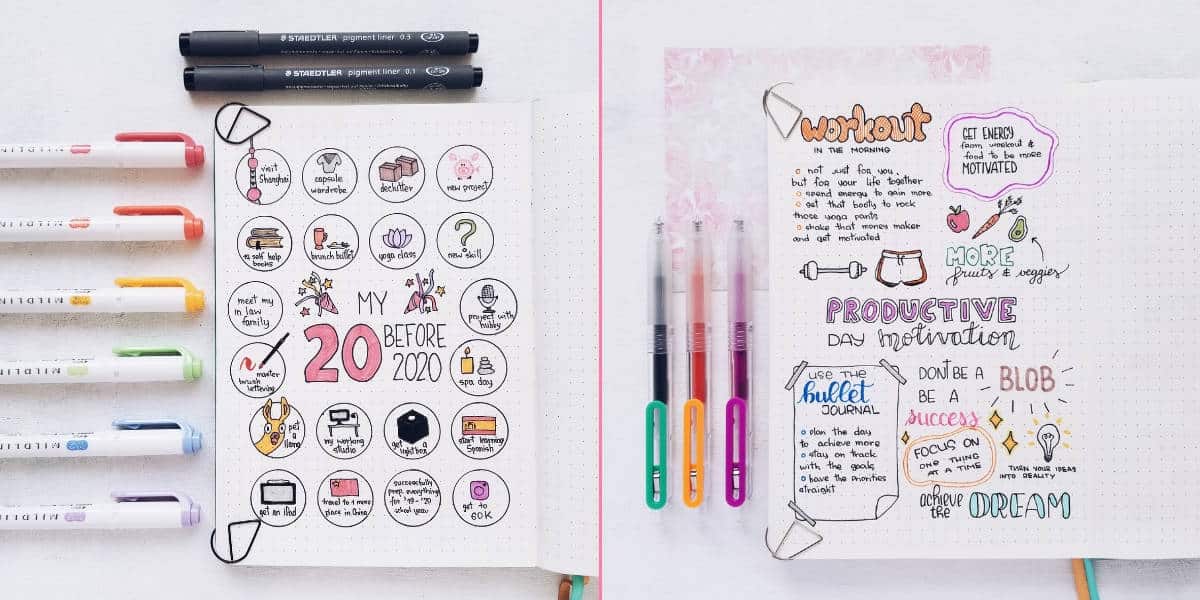 STAEDTLER pigment liner 0.3
STAEDTLER pigment liner 0.1
MILDLIN
MILDLIN
MILDLIN
MILDLIN
MILDLIN
visit
Shanghai
capsule
wardrobe
declutter
new project
12 self help
books
brunch ballet
yoga class
new skill
meet my
in law
family
MY
20
BEFORE
2020
project with
hubby
master
brush
lettering
spa day
pet
a
llama
my working
studio
get a
lightbox
start learning
Spanish
get an iPad
travel to 1 more
place in China
successfully
prep everything
for '19-'20
school year
get to
60K
workout
IN THE MORNING
not just for you,
but for your life together
spend energy to gain more
get that booty to rock
those yoga pants
shake that money maker
and get motivated
GET ENERGY
from workout &
food to be more
MOTIVATED
MORE
fruits & veggies
PRODUCTIVE
DAY motivation
USE THE
bullet
JOURNAL
plan the day
to achieve more
stay on track
with the goals
have the priorities
straight
DON'T BE A BLOB
BE A
success
FOCUS ON
ONE THING
AT A TIME
TURN YOUR IDEAS
INTO REALITY
achieve
the DREAM